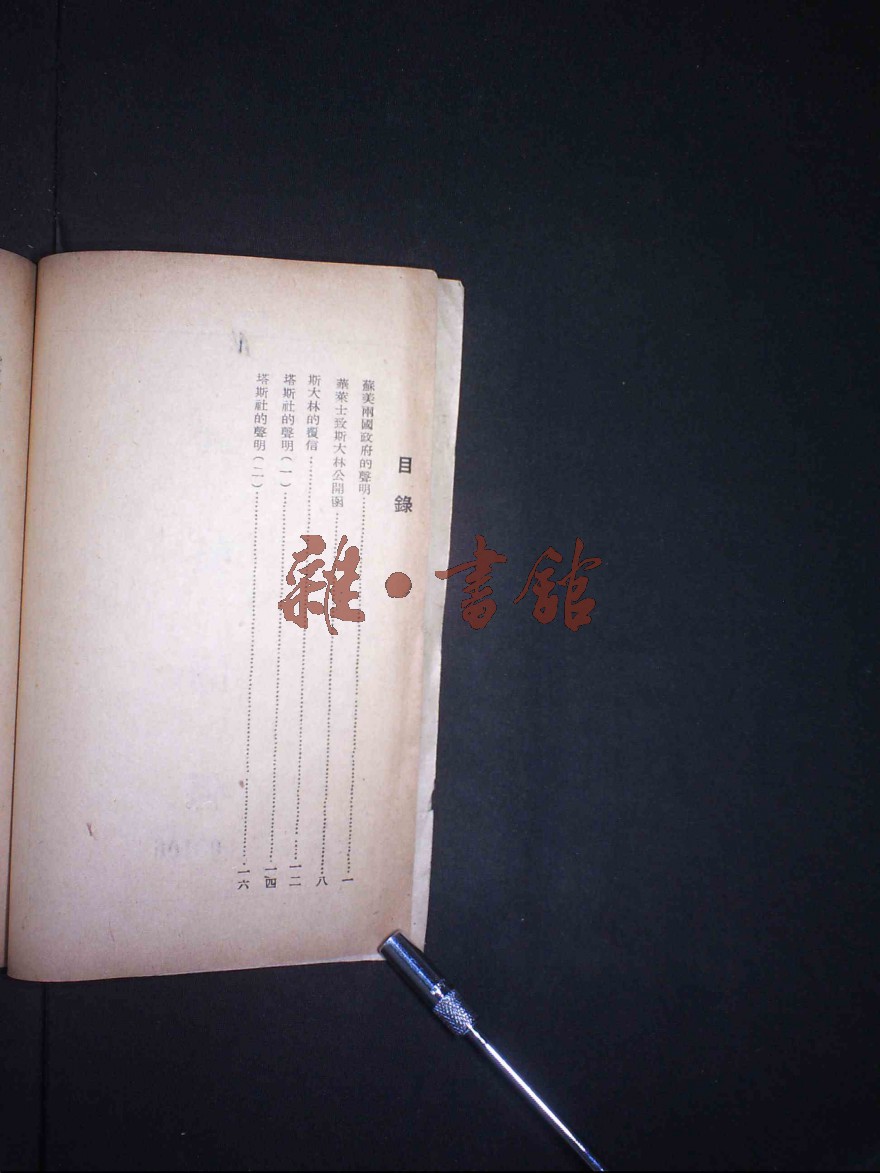 目錄
蘇美兩國政府的聲明…………一
華萊士致斯大林公開函…………八
斯大林的覆信…………一二
塔斯社的聲明(一)…………一四
塔斯社的聲明(二)…………一六
雜·書館